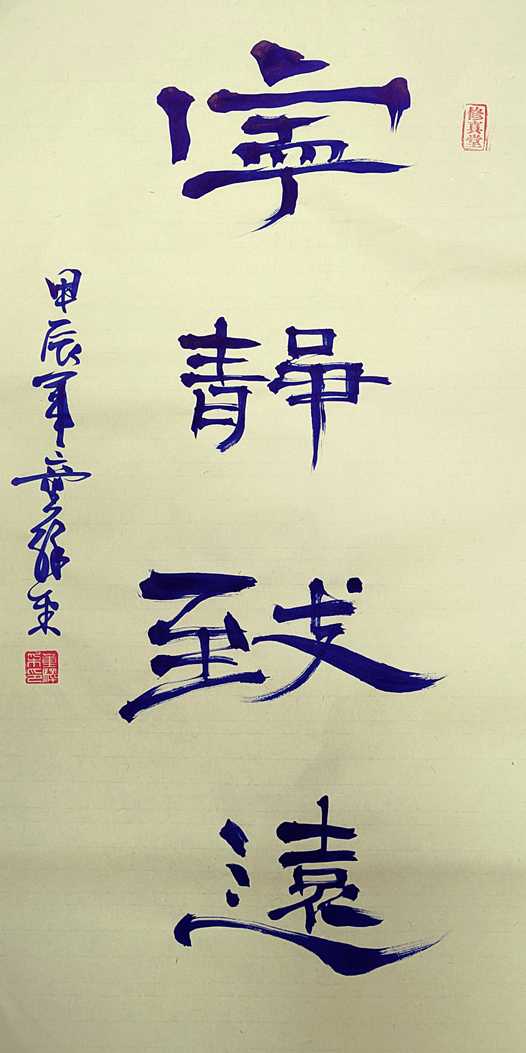 修真堂
寧靜致遠
甲辰年